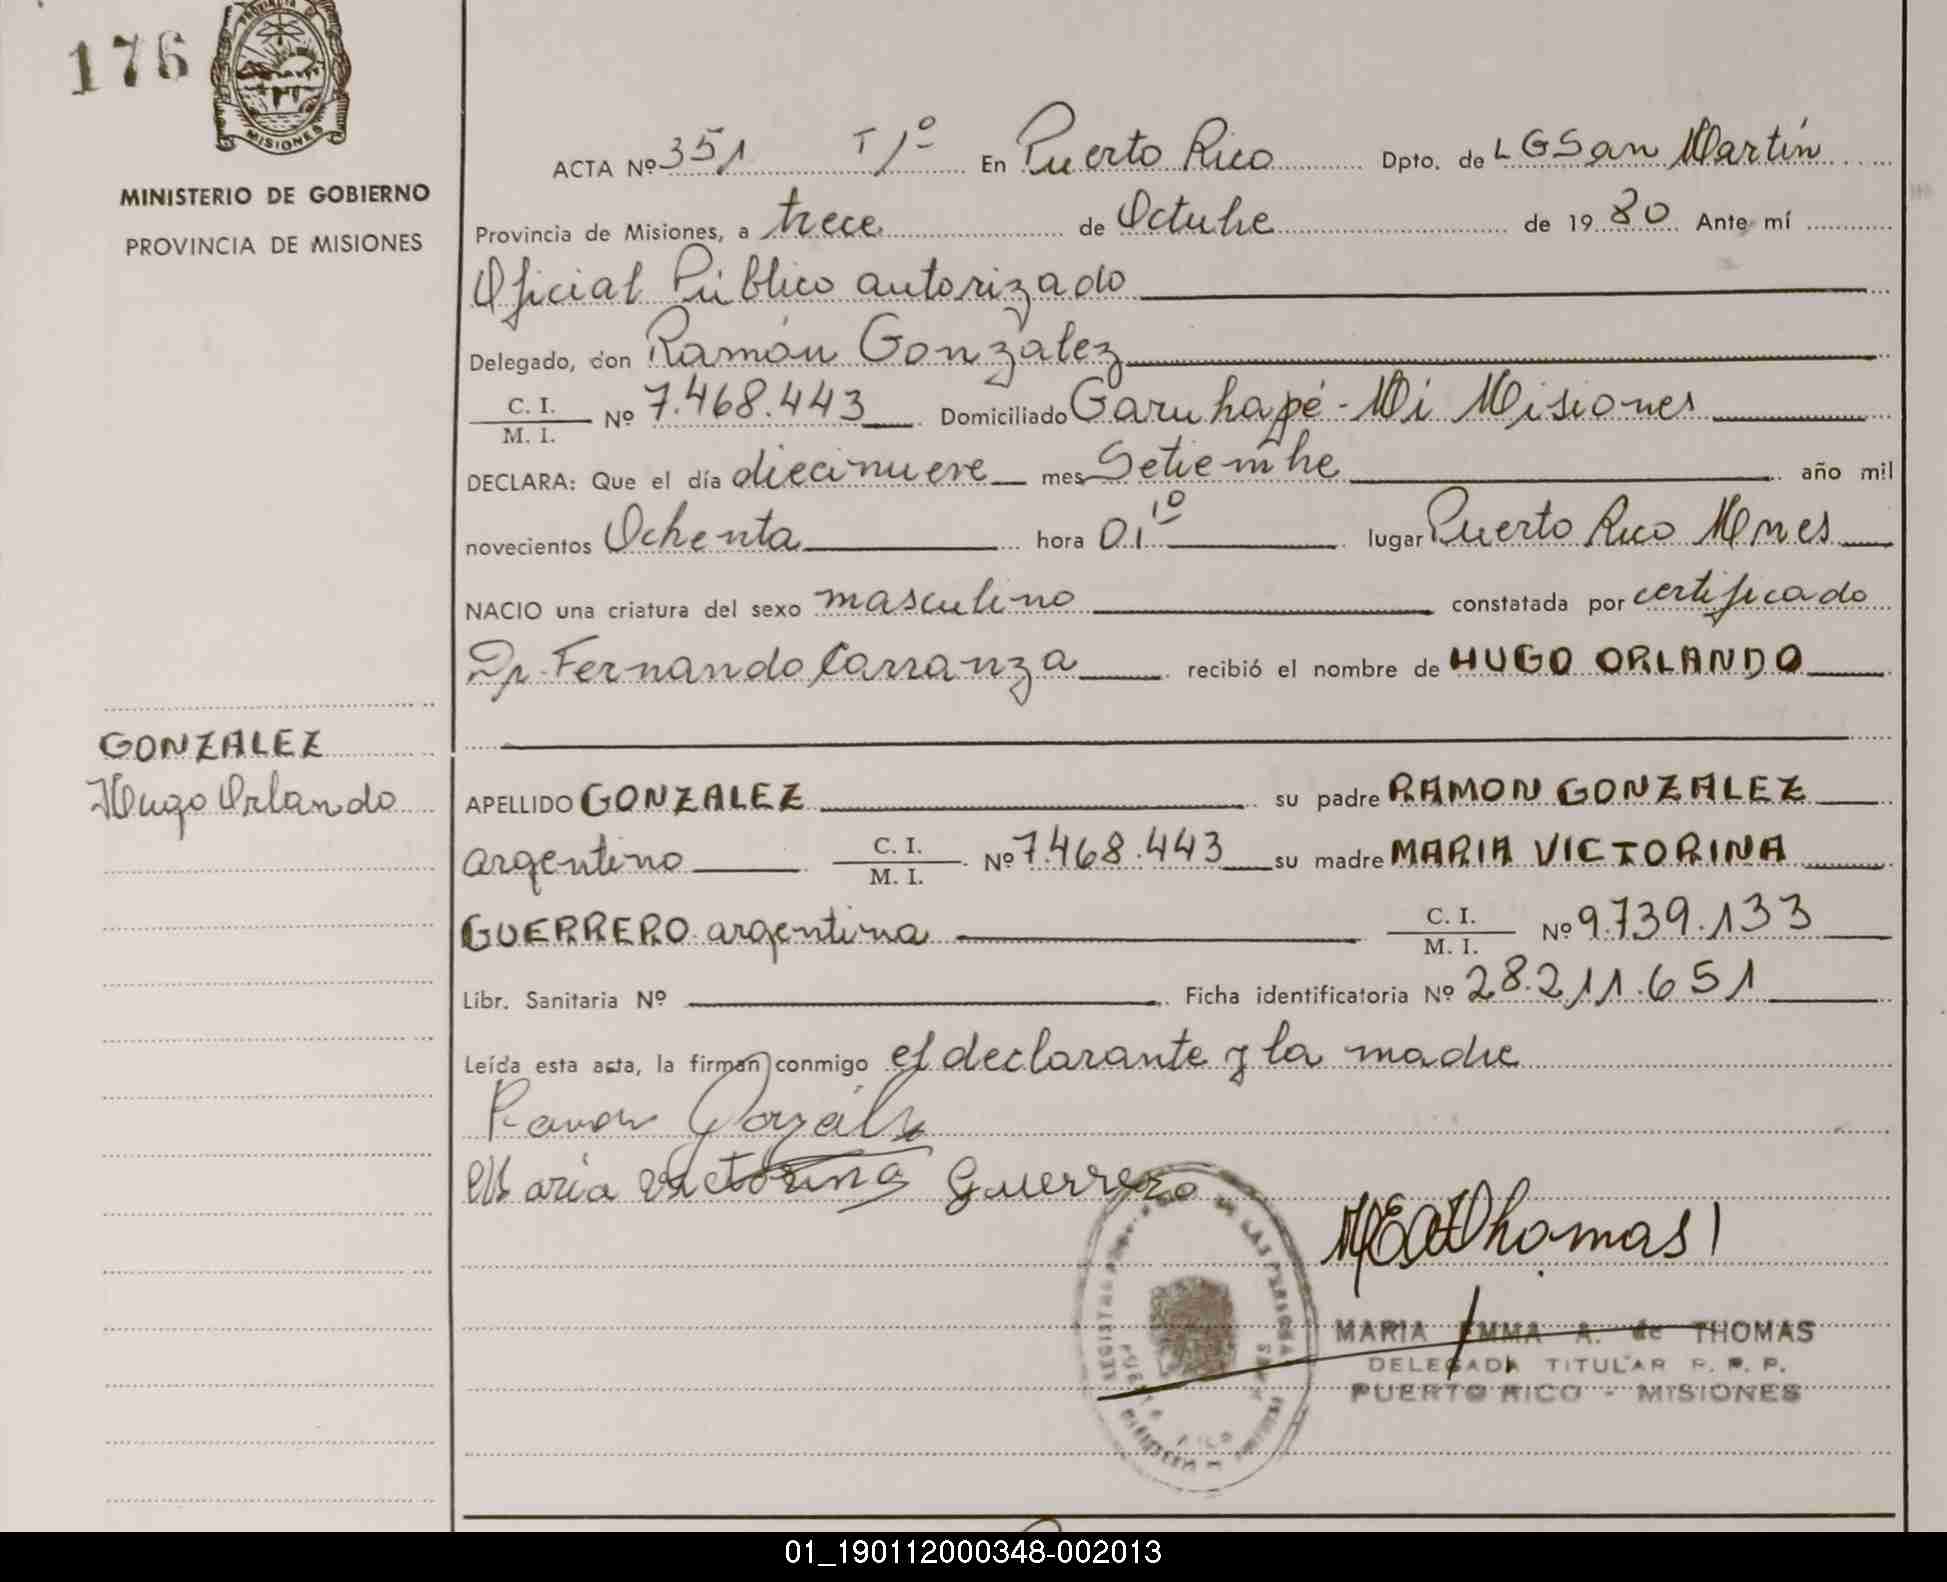 176
MISIONES
MINISTERIO DE GOBIERNO
PROVINCIA DE MISIONES
ACTA Nº 351 T 1º En Puerto Rico Dpto. de L G San Martín
Provincia de Misiones, a trece de Octubre de 19 80 Ante mí
Oficial Público autorizado
Delegado, don Ramón Gonzalez
C. I.
M. I. Nº 7.468.443 Domiciliado Garuhapé - Mi Misiones
DECLARA: Que el día diecinueve mes Setiembre año mil
novecientos Ochenta hora 01 10 lugar Puerto Rico Mnes
NACIO una criatura del sexo masculino constatada por certificado
Dr. Fernando Carranza recibió el nombre de HUGO ORLANDO
GONZALEZ
Hugo Orlando
APELLIDO GONZALEZ su padre RAMON GONZALEZ
argentino C. I.
M. I. Nº 7.468.443 su madre MARIA VICTORINA
GUERRERO argentina C. I.
M. I. Nº 9.739.133
Libr. Sanitaria Nº Ficha identificatoria Nº 28.211.651
Leída esta acta, la firman conmigo el declarante y la madre
Ramon Gonzalez
Maria Victorina Guerrero
Thomas
MARIA EMMA A. de THOMAS
DELEGADA TITULAR R. P. P.
PUERTO RICO - MISIONES
01_190112000348-002013